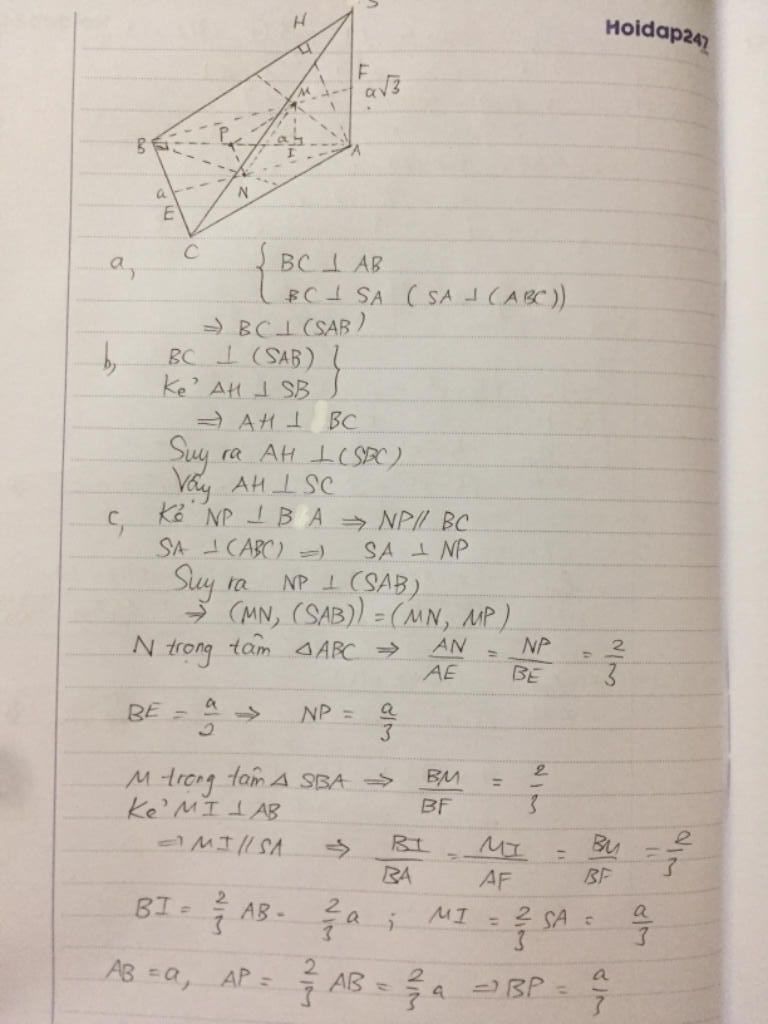 Hoidap247
S
H
F
a√3
M
B
P
a
I
A
a
N
E
C
a, { BC ⊥ AB
BC ⊥ SA ( SA ⊥ (ABC))
⇒ BC ⊥ (SAB)
b, BC ⊥ (SAB) }
Kẻ AH ⊥ SB
⇒ AH ⊥ BC
Suy ra AH ⊥ (SBC)
Vậy AH ⊥ SC
c, Kẻ NP ⊥ BA ⇒ NP // BC
SA ⊥ (ABC) ⇒ SA ⊥ NP
Suy ra NP ⊥ (SAB)
⇒ (MN, (SAB)) = (MN, MP)
N trọng tâm △ABC ⇒ AN/AE = NP/BE = 2/3
BE = a/2 ⇒ NP = a/3
M trọng tâm △ SBA ⇒ BM/BF = 2/3
Kẻ MI ⊥ AB
⇒ MI // SA ⇒ BI/BA = MI/AF = BM/BF = 2/3
BI = 2/3 AB = 2/3 a ; MI = 2/3 SA = a/3
AB = a, AP = 2/3 AB = 2/3 a ⇒ BP = a/3